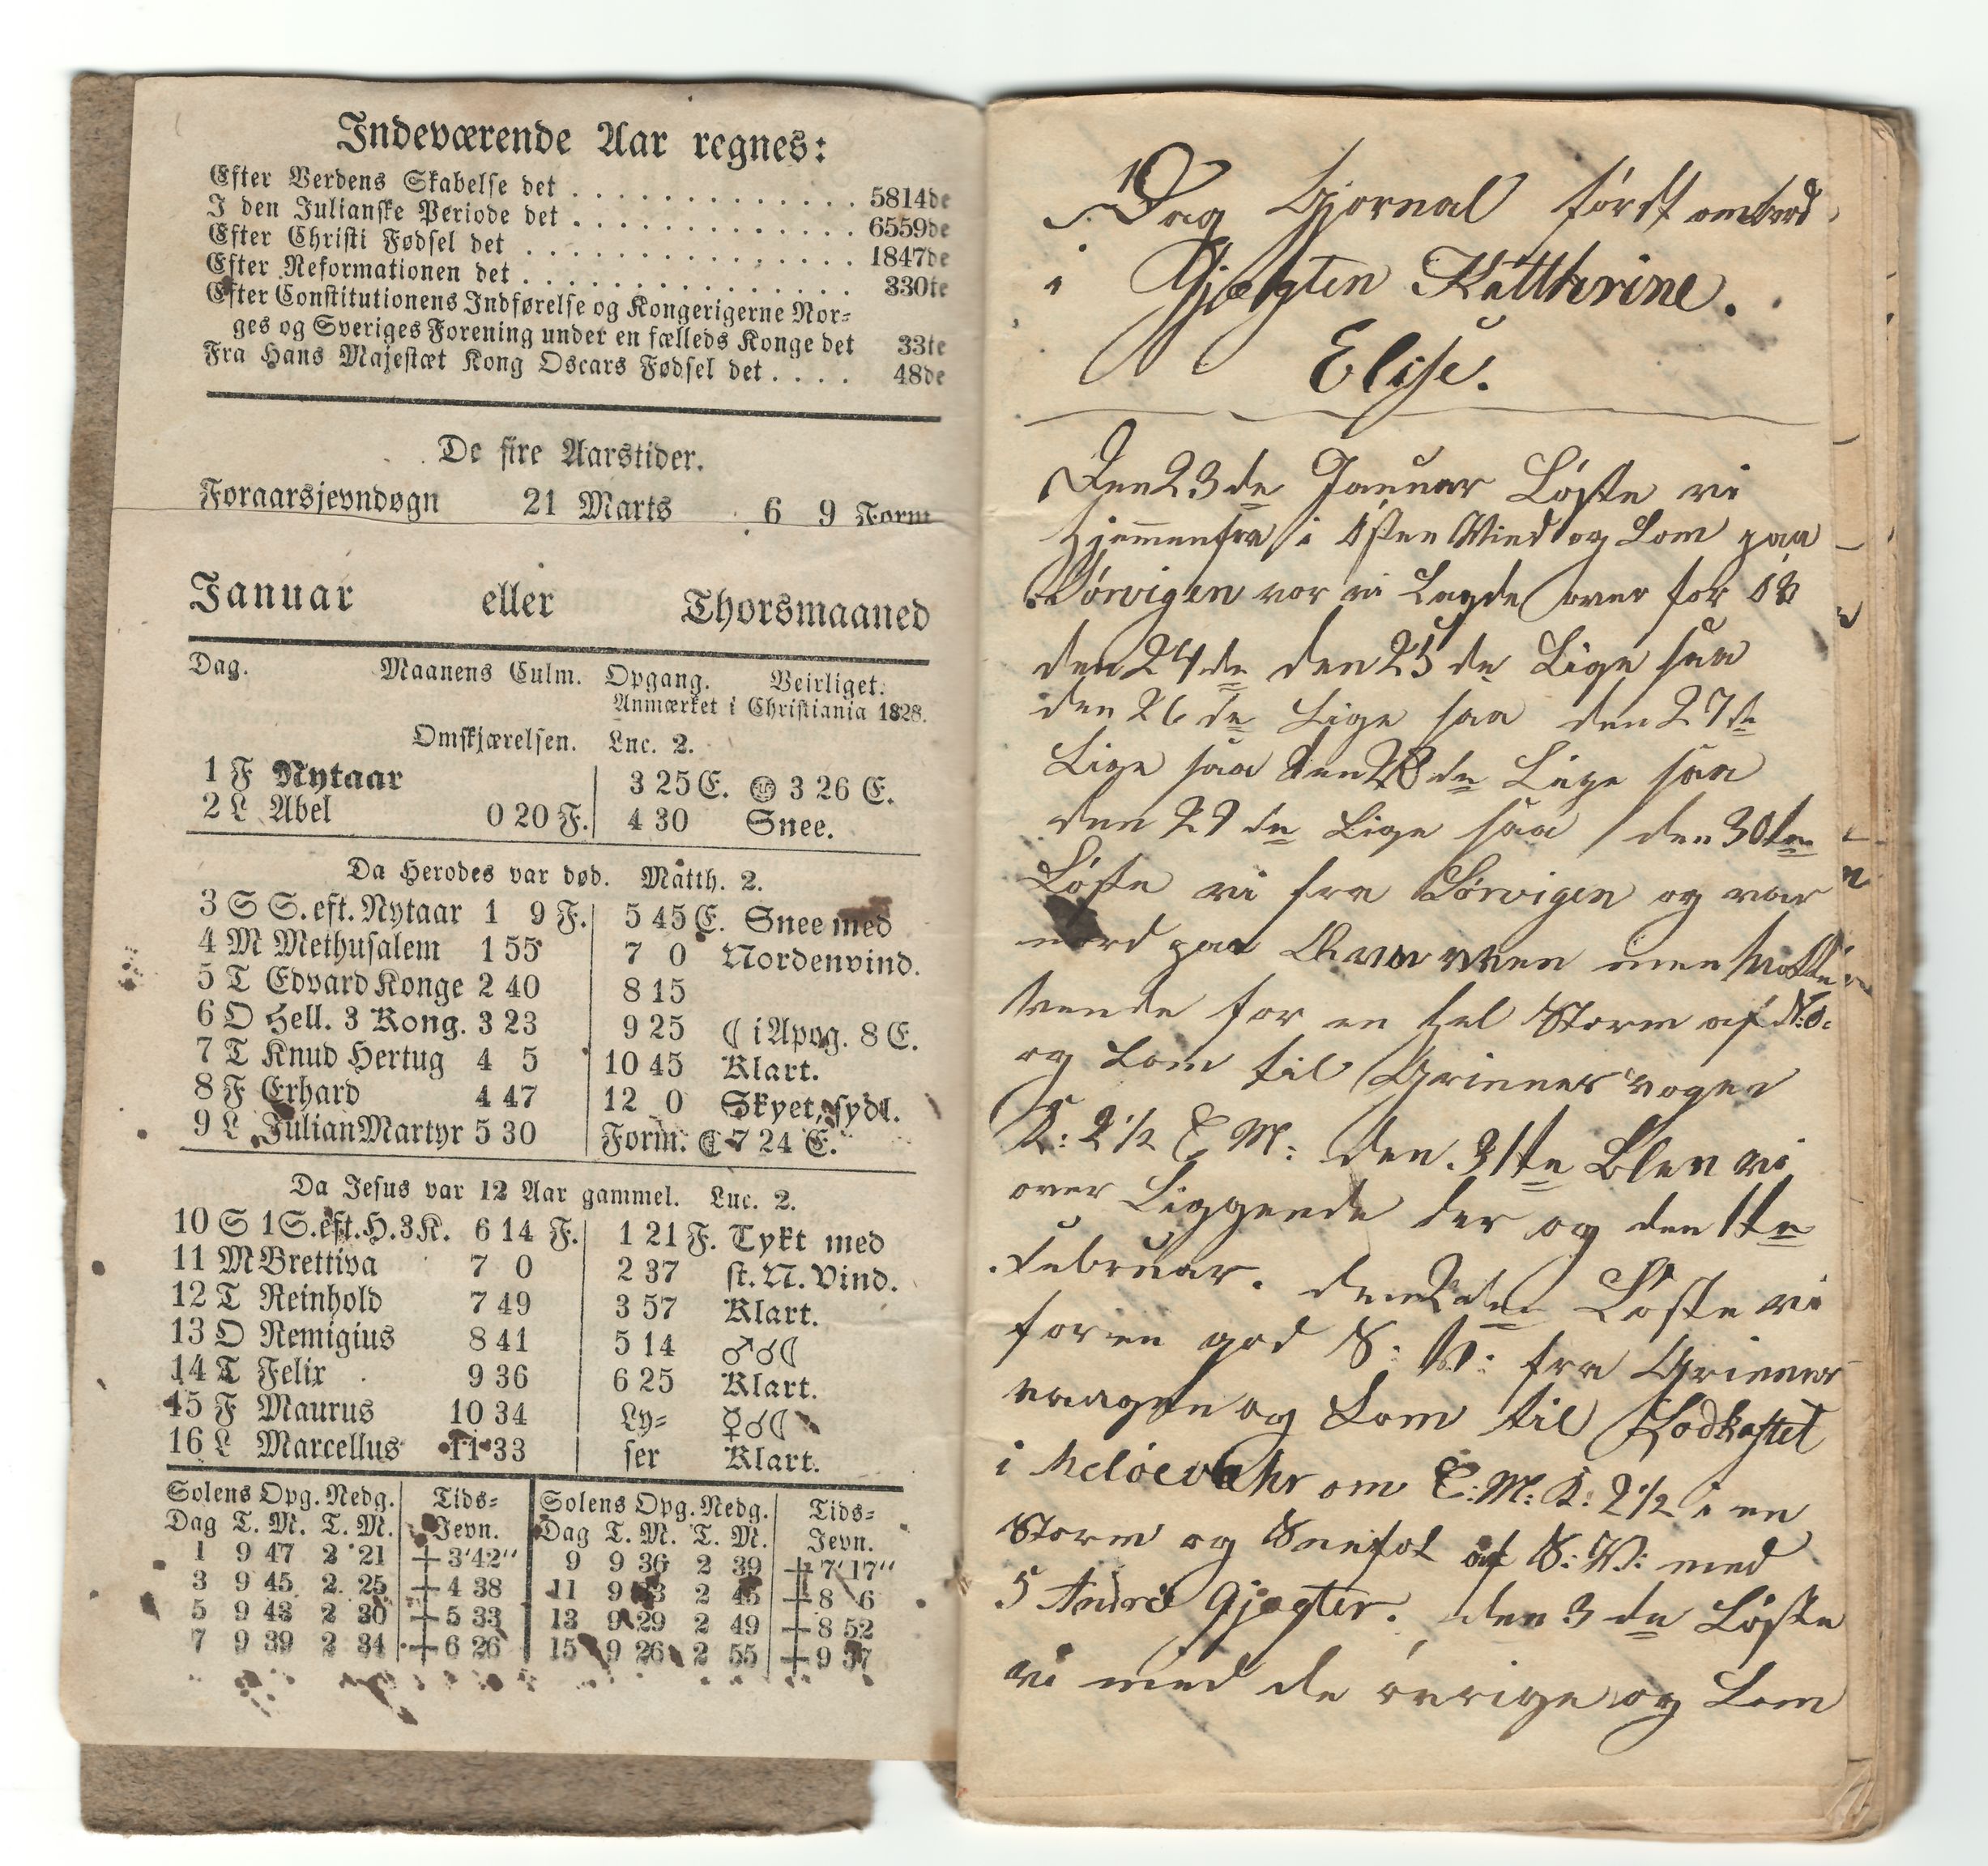 Indeværende Aar regnes:
Efter Verdens Skabelse det . . . . . . . . . . . . . 5814de
I den Julianske Periode det . . . . . . . . . . . . 6559de
Efter Christi Fødsel det . . . . . . . . . . . . . . 1847de
Efter Reformationen det . . . . . . . . . . . . . . 330te
Efter Constitutionens Indførelse og Kongerigerne Nor-
ges og Sveriges Forening under en fælleds Konge det 33te
Fra Hans Majestæt Kong Oscars Fødsel det . . . . 48de
De fire Aarstider.
Foraarsjevndøgn 21 Marts 6 9 Form
Januar eller Thorsmaaned
Dag. Maanens Culm. Opgang. Veirliget.
Anmærket i Christiania 1828.
Omskjærelsen. Luc. 2.
1 F Nytaar 3 25 E. 3 26 E.
2 L Abel 0 20 F. 4 30 Snee.
Da Herodes var død. Matth. 2.
3 S S. eft. Nytaar 1 9 F. 5 45 E. Snee med
4 M Methusalem 1 55 7 0 Nordenvind.
5 T Edvard Konge 2 40 8 15
6 O Hell. 3 Kong. 3 23 9 25 ☾ i Apog. 8 E.
7 T Knud Hertug 4 5 10 45 Klart.
8 F Erhard 4 47 12 0 Skyet, sydl.
9 L Julian Martyr 5 30 Form. ☾ 7 24 E.
Da Jesus var 12 Aar gammel. Luc. 2.
10 S 1 S. eft. H. 3 K. 6 14 F. 1 21 F. Tykt med
11 M Brettiva 7 0 2 37 st. N. Vind.
12 T Reinhold 7 49 3 57 Klart.
13 O Remigius 8 41 5 14 ♂☌☾
14 T Felix 9 36 6 25 Klart.
15 F Maurus 10 34 Ly- ☿☌☾
16 L Marcellus 11 33 ser Klart.
Solens Opg. Nedg. Tids- Solens Opg. Nedg. Tids-
Dag T. M. T. M. Jevn. Dag T. M. T. M. Jevn.
1 9 47 2 21 +3'42" 9 9 36 2 39 +7'17"
3 9 45 2 25 +4 38 11 9 33 2 45 +8 6
5 9 43 2 30 +5 33 13 9 29 2 49 +8 52
7 9 39 2 34 +6 26 15 9 26 2 55 +9 37
Dag Gjornal først ombord
i Gjægten Katthrine.
Elise.
Den 23de Januar Løste vi
hjemmenfra i Østen Vind og kom paa
Sørvigen vor vi Lagde over for
den 24de den 25de Lige saa
den 26de Lige saa den 27de
Lige saa den 28de Lige saa
den 29de Lige saa den 30te
Løste vi fra Sørvigen og var
nord paa men maatte
vende for en hel Storm af N:O:
og kom til Grinnes vogen
K: 2 1/2 E M: den 31te Blev vi
over Liggende der og den 1te
Februar. den 2den Løste vi
for en god S: V: fra Grinnes
vaagen og kom til Rodkastet
i Meløevehr om E:M: K: 2 1/2 i en
Storm og Snefok af S: V: med
5 Andre Gjægter. den 3de Løste
vi med de øvrige og kom